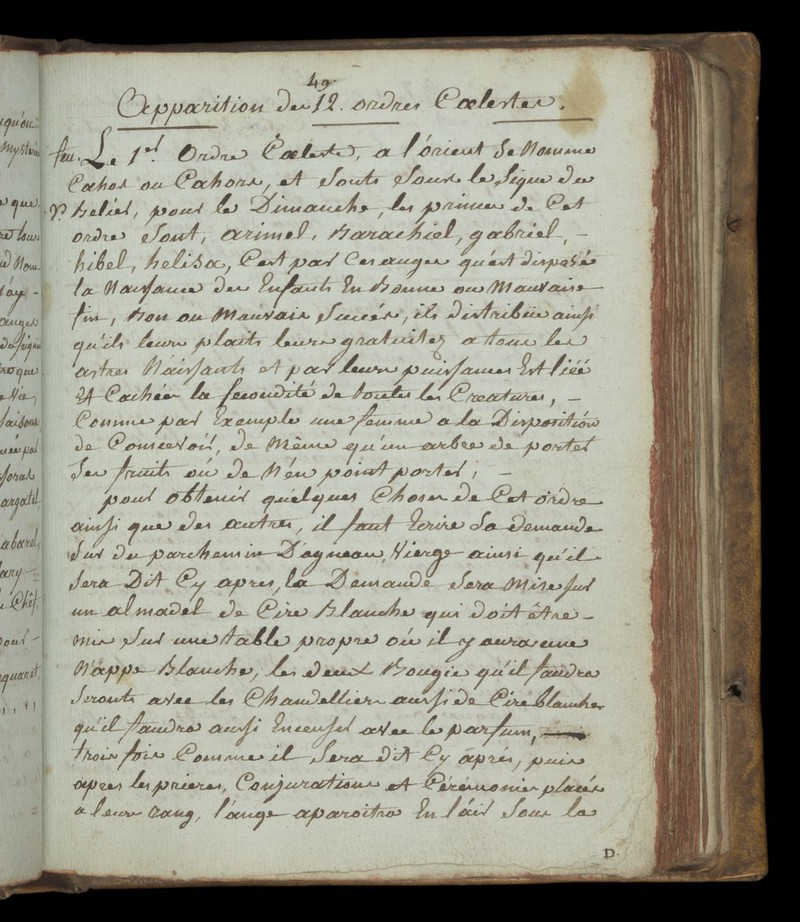 49.
Apparition Des 12. ordres Cœlestes.
feu. Le 1er. Ordre Cœleste, a l'órient Se Nomme
Cahos ou Cahors, et Sonts Sous le Signe de
♈ Belier, pour le Dimanche, les princes de Cet
ordre Sont, arimel, Barachiel, gabriel, -
hibel, helisa, C'est par Ces anges qu'est disposéé
la Naissance des Enfants En Bonne ou Mauvaise
fin, Bon ou Mauvais Succés, ils distribüe ainsi
qu'ils leurs plaits leurs gratuitez a tous les
astres Náissants et par leurs puissances Est liéé
Et Cachée la fecondité de toutes les Creatures, -
Comme par Exemple une femme a la Disposition
de Concevoir, de Même qu'un arbre de porter
des fruits ou de N'en point porter; -
pour obtenir quelques Choses de Cet ordre
ainsi que des autres, il faut Ecrire Sa demande
Sur du parchemin D'agneau Vierge ainsi qu'il
Sera Dit Cy apres, la Demande Sera Mise sur
un almadel de Cire Blanche qui doit être -
mis Sur une table propre où il y aura une
Nappe Blanche, les deux Bougie qu'il faudra
Seronts avec les Chandelliers aussi de Cire blanche
qu'il faudra aussi Encenser avec le parfum, —
trois fois Comme il Sera dit Cy áprés, puis
apres les prieres, Conjurations et Cérémonies placées
a leurs rang, l'ange aparoitra En l'áir Sous la
D.